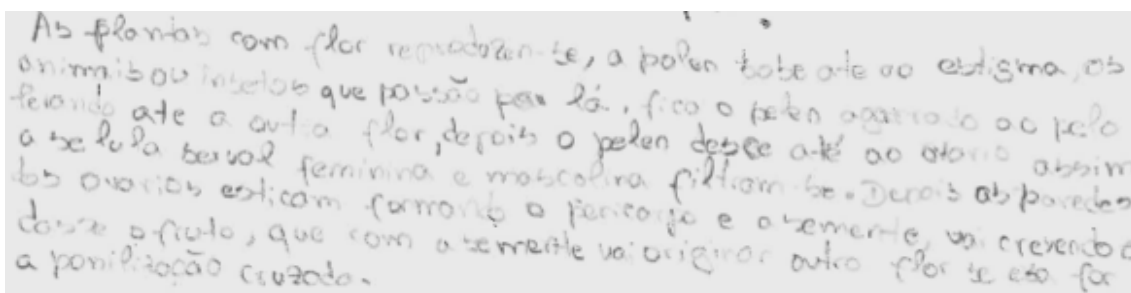 As plantas com flor reproduzen-se, a polen sobe ate ao estigma, os
animais ou insetos que passão por lá, fica o polen agarrado ao pelo
levando ate a outra flor, depois o pelen desce até ao otario assim
a selula sexual feminina e mascolina filtram-se. Depois as paredes
dos ovarios esticam formando o pericarpo e a semente, vai crevendo e
dasse o fruto, que com a semente vai originar outra flor se esa for
a ponilização cruzada.